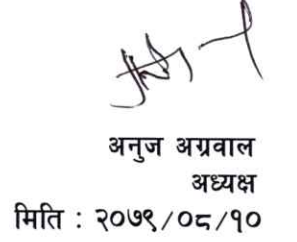 अनुज अग्रवाल
अध्यक्ष
मिति : २०७९/०८/१०